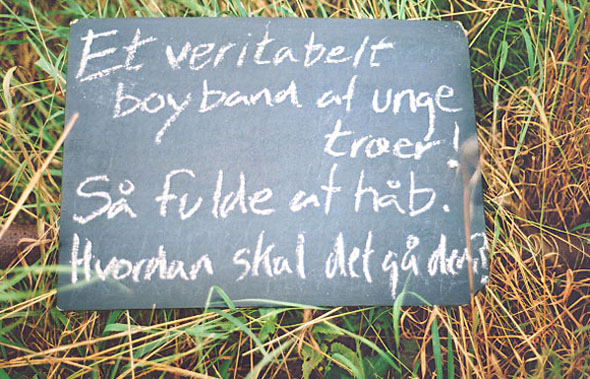 Et veritabelt
boyband af unge
træer!
Så fulde af håb.
Hvordan skal det gå dem?